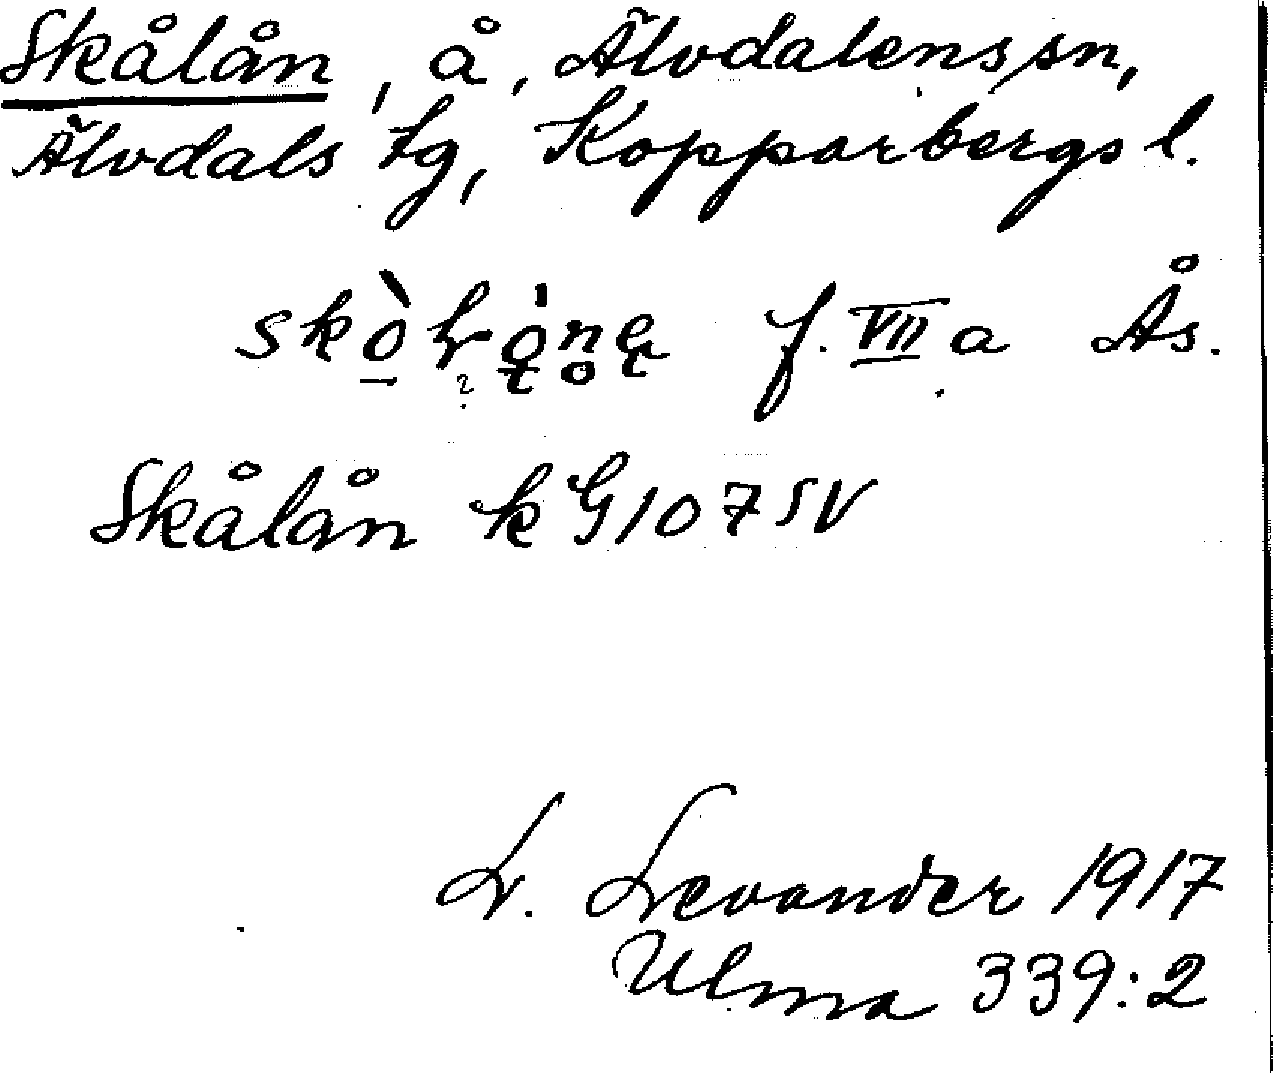 Skålån, å, Älvdalens sn,
Älvdals tg, Kopparbergs l.
f. VII a Ås.
Skålån k G107 SV
L. Levander 1917
Ulma 339:2